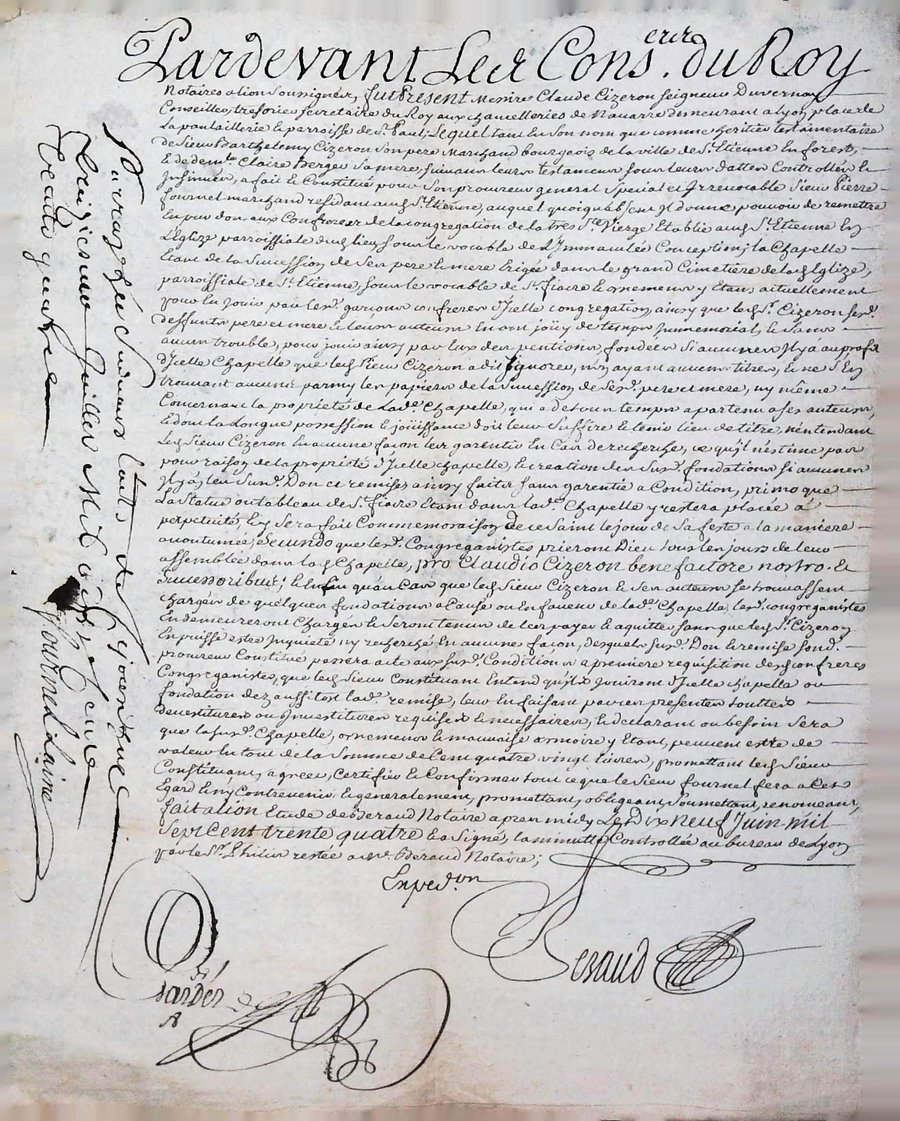 Pardevant Les Cons.ers du Roy
Notaires a lion Soussignés, fut Present Messire Claude Cizeron Seigneur Duvernay
Conseiller, tresorier secretaire du Roy aux chancelleries de Navarre demeurant a Lyon place de
La poulaillerie parroisse de St. Paul; Lequel tant en son nom que comme heritier testamentaire
de Sieur Barthelemy Cizeron Son pere Marchand bourgeois de la ville de St. Etienne En forest,
& de dem.lle Claire Berger Sa mere, suivant leurs testaments sous leurs dattes Controllés &
Insinués, a fait & Constitué pour Son procureur general Special et Irrevocable Sieur Pierre
fournel marchand residant aud. St. Etienne, auquel quoiqu'absent Il donne pouvoir de remettre
En pur don aux Confreres de la congregation de la tres Ste. Vierge Etablie aud. St. Etienne En
L'Eglize parroissiale dud. lieu sous le vocable de L'Immaculée Conception; la Chapelle
de la Succession de Ses pere & mere Erigée dans le grand Cimetiere de lad. Eglize
parroissiale de St. Etienne, sous le vocable de St. fiacre & ornemens y Etans actuellement
pour En Jouir par les d. garçons confreres d'Icelle congregation, ainsy que led. Sr. Cizeron ses d.
deffunts pere et mere & leurs auteurs En ont joüy de temps Immemorial, & Sans
aucun trouble, pour jouir aussy par Eux des pentions, fondées Si aucunes Il y a au profit
d'Icelle Chapelle que led. Sieur Cizeron a dit Ignorer, n'en ayant aucuns titres, & ne S'En
trouvant aucuns parmy les papiers de la Succession de Ses d. pere et mere, ny même
Concernant la proprieté de Lad. Chapelle, qui a de tout temps apartenu a ses auteurs,
& dont La Longue possession & joüissance doit leur Suffire & tenir lieu de titre, n'entendant
Led. Sieur Cizeron En aucune façon leur garentir En Cas de recherche, ce qu'il n'estime pas
pour raison de la proprieté d'Icelle chapelle, & creation des Sus d. fondations si aucunes
Il y a, les Sus d. Don et remise ainsy faits sans garentie a Condition, primo que
La Statue ou tableau de St. fiacre Etant dans lad. Chapelle y restera placée a
perpetuité & y Sera fait Commemoraison de ce Saint le jour de Sa feste a la maniere
acoutumée, Secundo que les d. Congreganistes prieront Dieu tous les jours de leur
assemblée dans lad. Chapelle, pro Claudio Cizeron benefactore nostro. Et
Successoribus; & Enfin qu'au Cas que led. Sieur Cizeron & Ses auteurs se trouvassent
chargés de quelques fondations a Cause ou En faveur de lad. Chapelle, les d. congreganistes
En demeureront Chargés & Seront tenus de les payer & aquitter sans que led. Sr. Cizeron
En puisse estre Inquieté ny recherché En aucune façon, desquels Sus d. Don & remise Sond.
procureur Constitué passera acte aux Sus d. Conditions a premiere requisition desd. confreres
Congreganistes, que led. Sieur Constituant Entend qu'Ils jouiront d'Icelle chapelle ou
fondation dez aussitost lad. remise, leur En faisant par ces presentes touttes
devestitures ou Investitures requises & necessaires, & declarant ou besoin Sera
que la Sus d. Chapelle, ornemens & mauvaise armoire y Etant, peuvent estre de
valeur En tout de la Somme de Cent quatre vingt livres, promettant led. Sieur
Constituant, agréer, Certifier & Confirmer tout ce que le Sieur fournel fera a Cet
Egard & n'y Contrevenir & generalement, promettant, obligeant, Soumettant, renonceant,
fait a lion Etude de Beraud Notaire apres midy Le Dix Neuf Juin mil
Sept Cent trente quatre & a Signé, la minutte Controllée au bureau de Lyon
par le Sr. restée a Me. Beraud Notaire;
Exped.on
Beraud
Ne Varietur
treizieme Juillet Mil Sept Cent
trente quatre
fournel